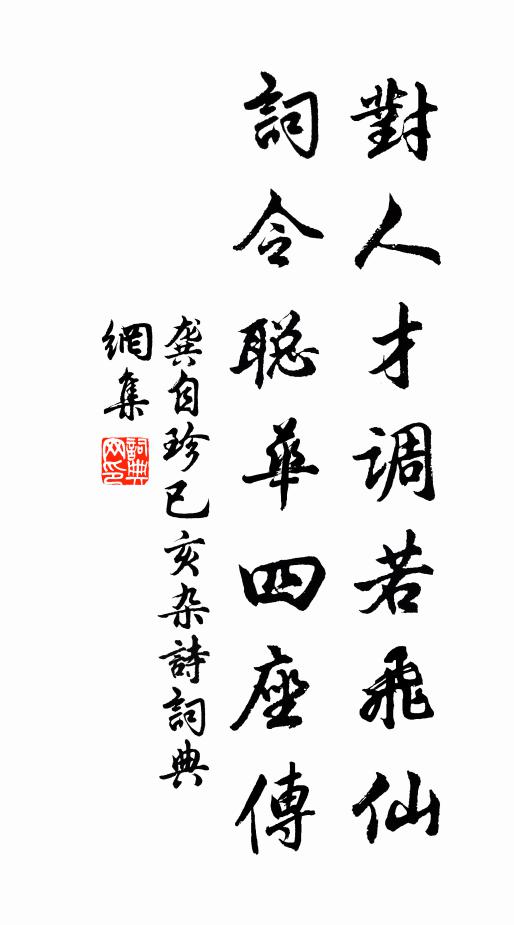 對人才調若飛仙
詞令聰華四座傳
龔自珍已亥杂詩詞典
網集
詞典網印